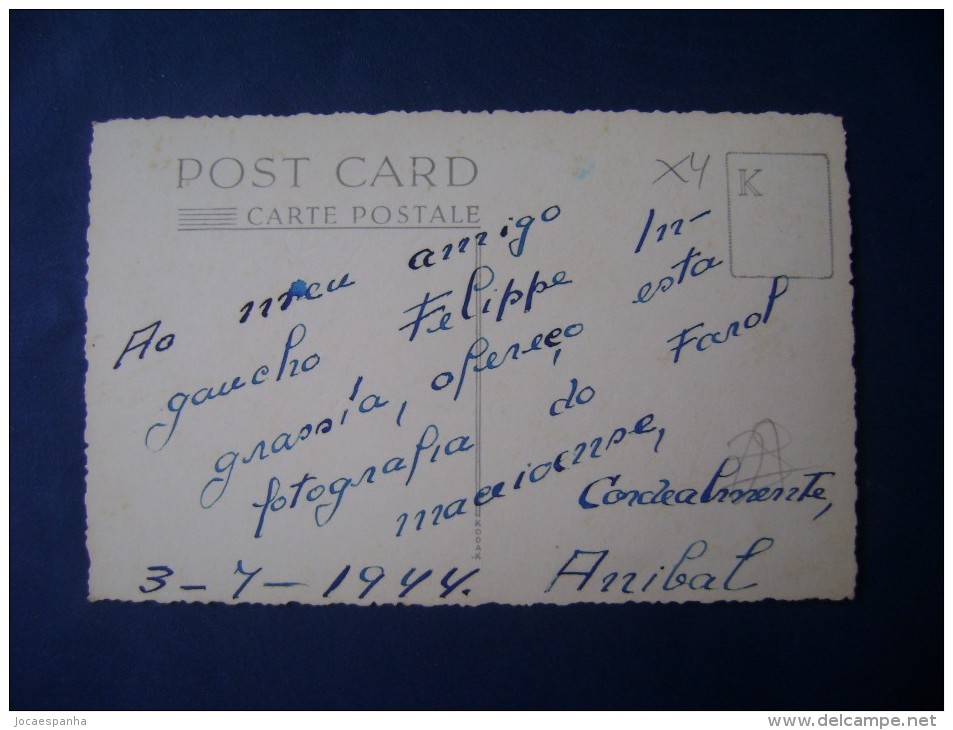 POST CARD
CARTE POSTALE
X4
K
Ao meu amigo
gaucho Felippe In-
grassia, ofereço esta
fotografia do Farol
maceioense,
Cordealmente,
3-7-1944. Anibal
KODAK
Jocaespanha
www.delcampe.net